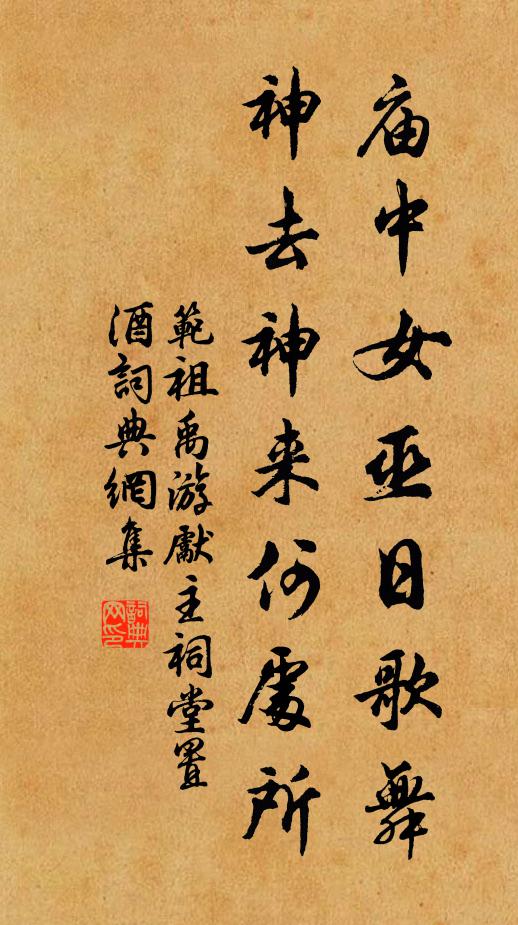 庙中女巫日歌舞
神去神来何處所
範祖禹游獻主祠堂置
酒詞典網集
詞典
网印